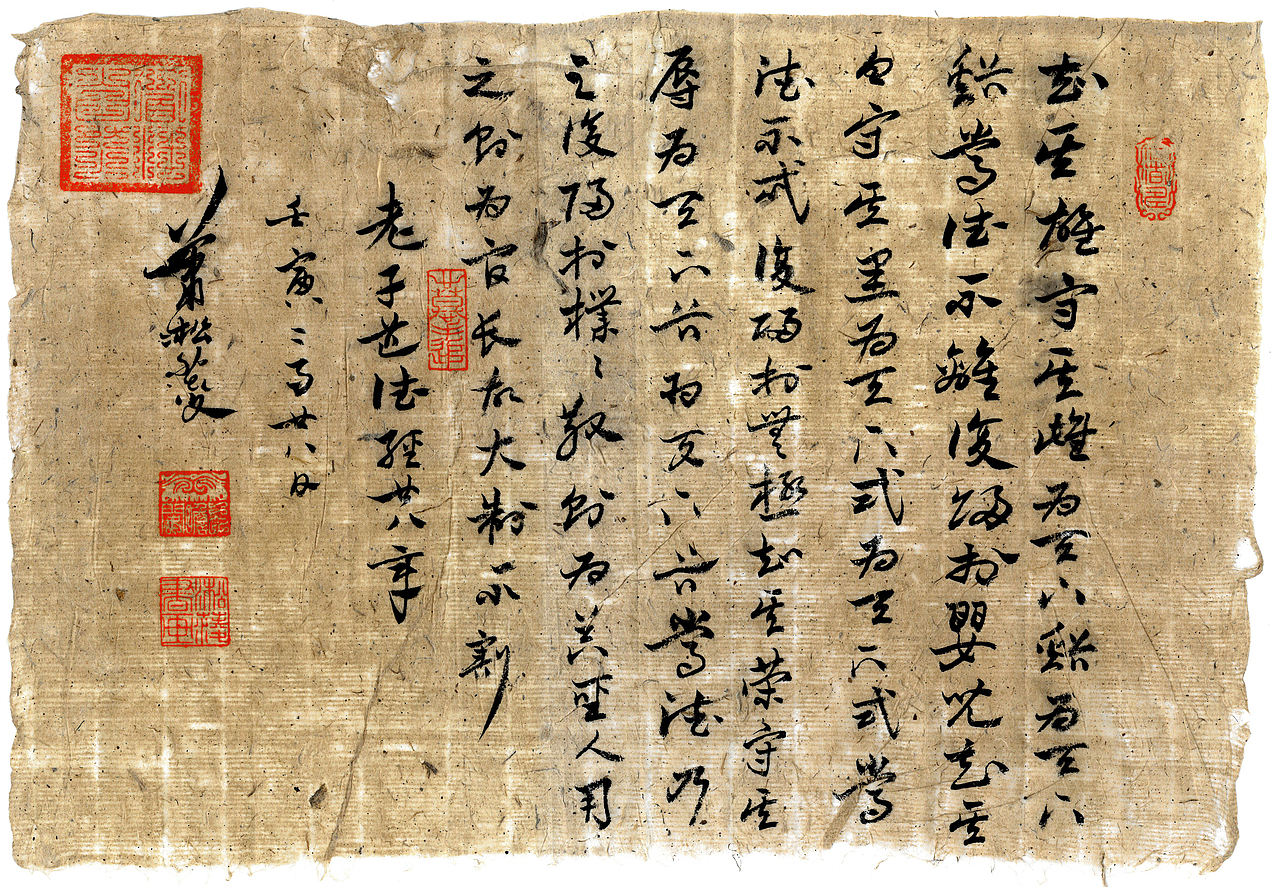 知其雄守其雌為天下谿為天下
谿常德不離復歸於嬰兒知其
白守其黑為天下式為天下式常
德不忒復歸於無極知其榮守其
辱為天下谷為天下谷常德乃
足復歸於樸〻散則為器聖人用
之則為官長故大制不割
老子道德經廿八章
壬寅二月廿八日